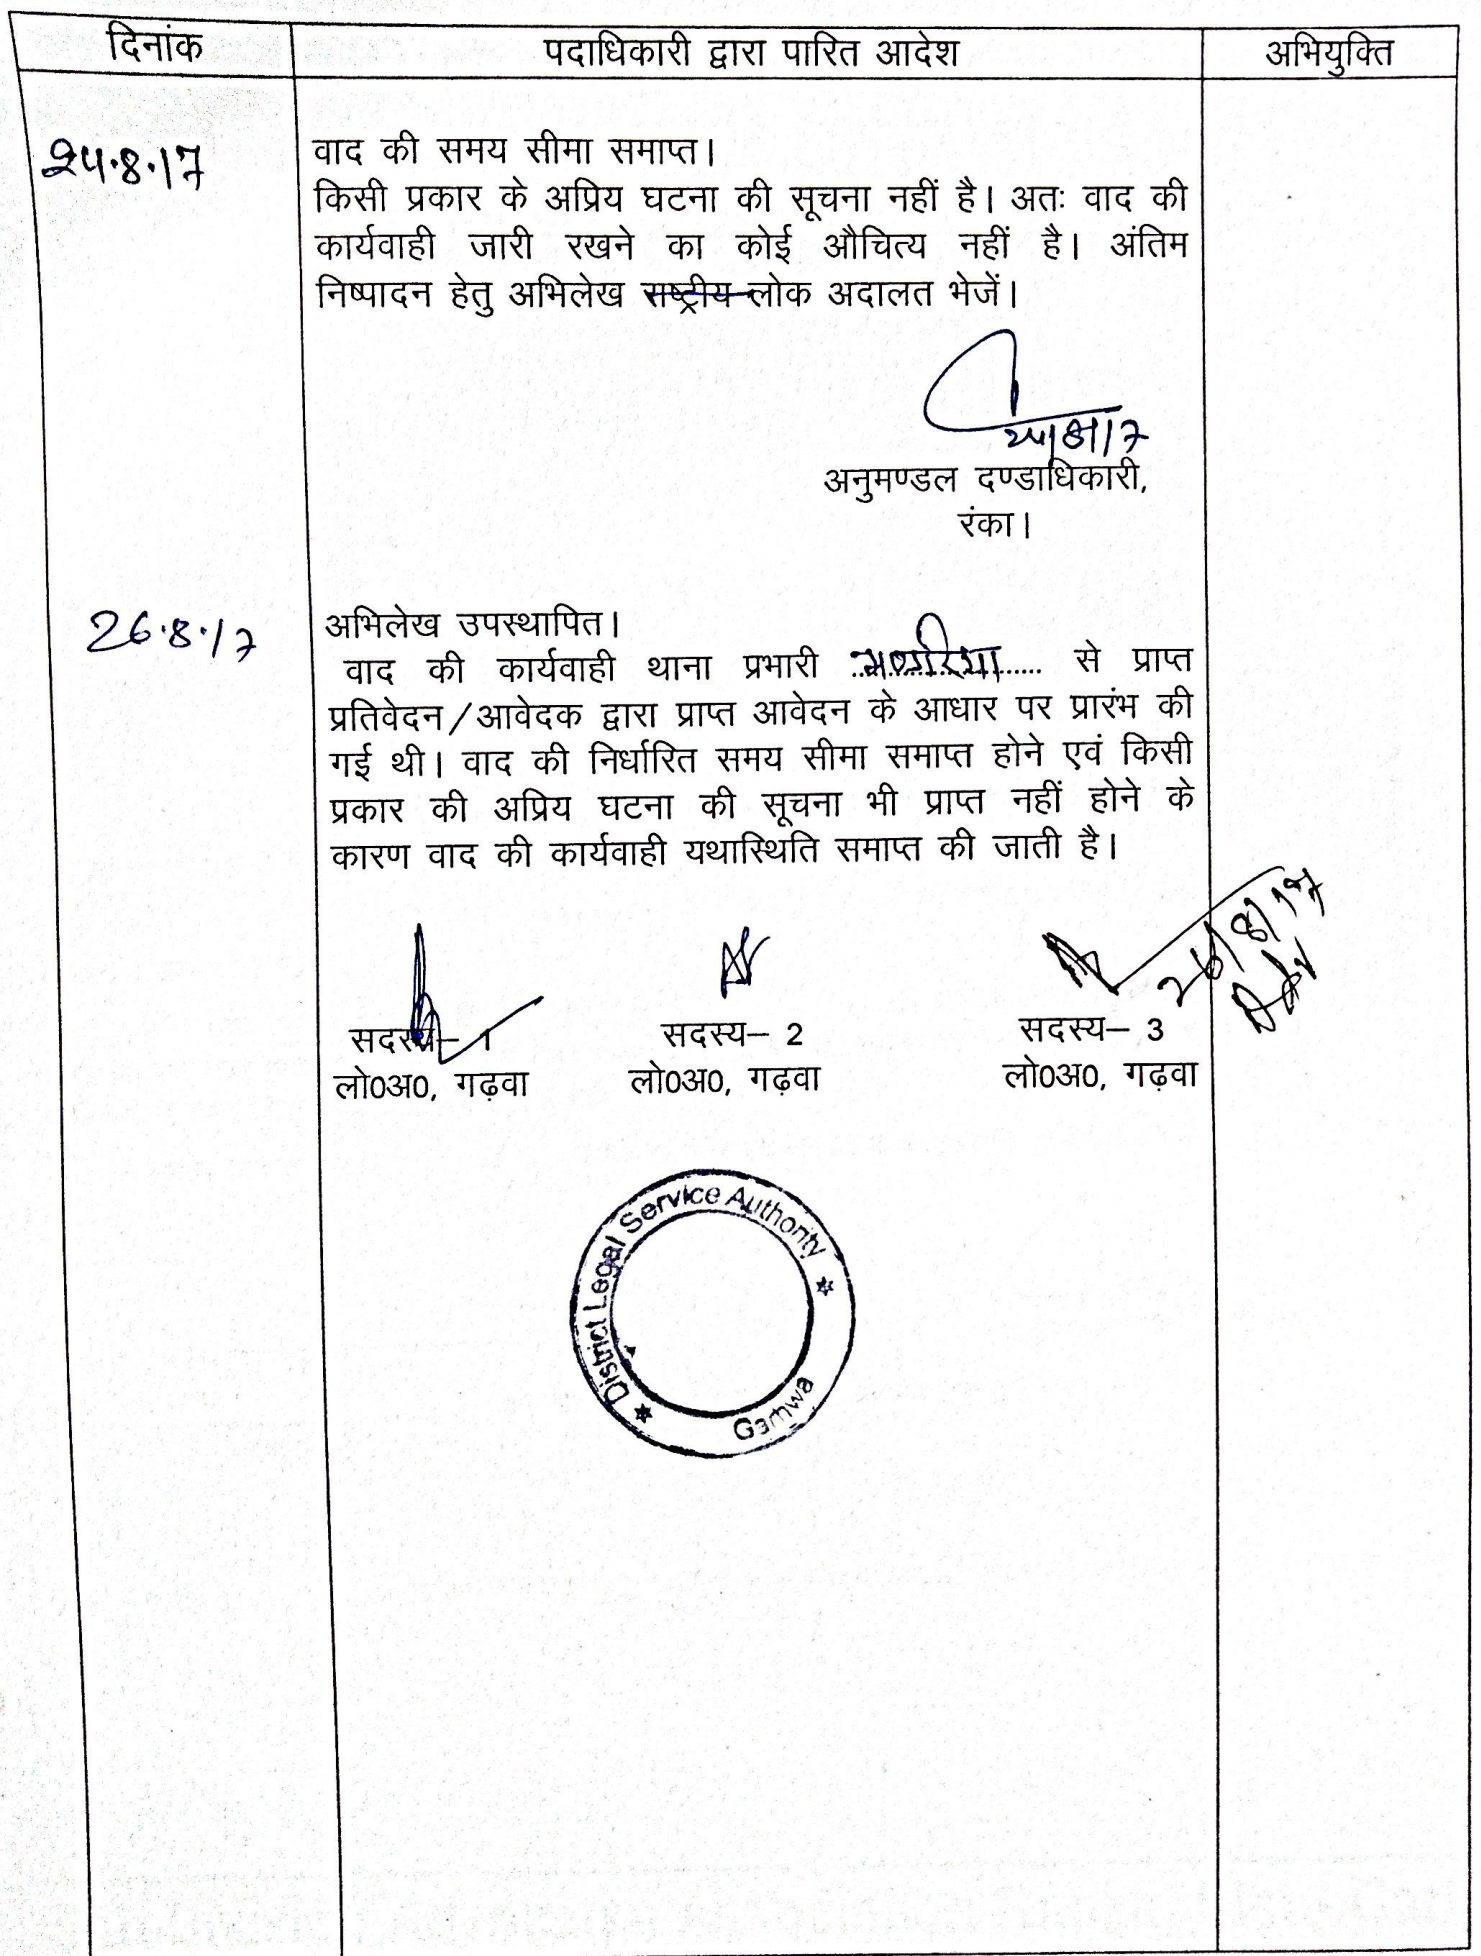 दिनांक पदाधिकारी द्वारा पारित आदेश अभियुक्ति
24.8.17 वाद की समय सीमा समाप्त।
किसी प्रकार के अप्रिय घटना की सूचना नहीं है। अतः वाद की
कार्यवाही जारी रखने का कोई औचित्य नहीं है। अंतिम
निष्पादन हेतु अभिलेख राष्ट्रीय लोक अदालत भेजें।
अनुमण्डल दण्डाधिकारी,
रंका।
26.8.17 अभिलेख उपस्थापित।
वाद की कार्यवाही थाना प्रभारी भण्डरिया से प्राप्त
प्रतिवेदन/आवेदक द्वारा प्राप्त आवेदन के आधार पर प्रारंभ की
गई थी। वाद की निर्धारित समय सीमा समाप्त होने एवं किसी
प्रकार की अप्रिय घटना की सूचना भी प्राप्त नहीं होने के
कारण वाद की कार्यवाही यथास्थिति समाप्त की जाती है।
26/8/17
सदस्य– 1 सदस्य– 2 सदस्य– 3
लो0अ0, गढ़वा लो0अ0, गढ़वा लो0अ0, गढ़वा
District Legal Service Authority
Garhwa